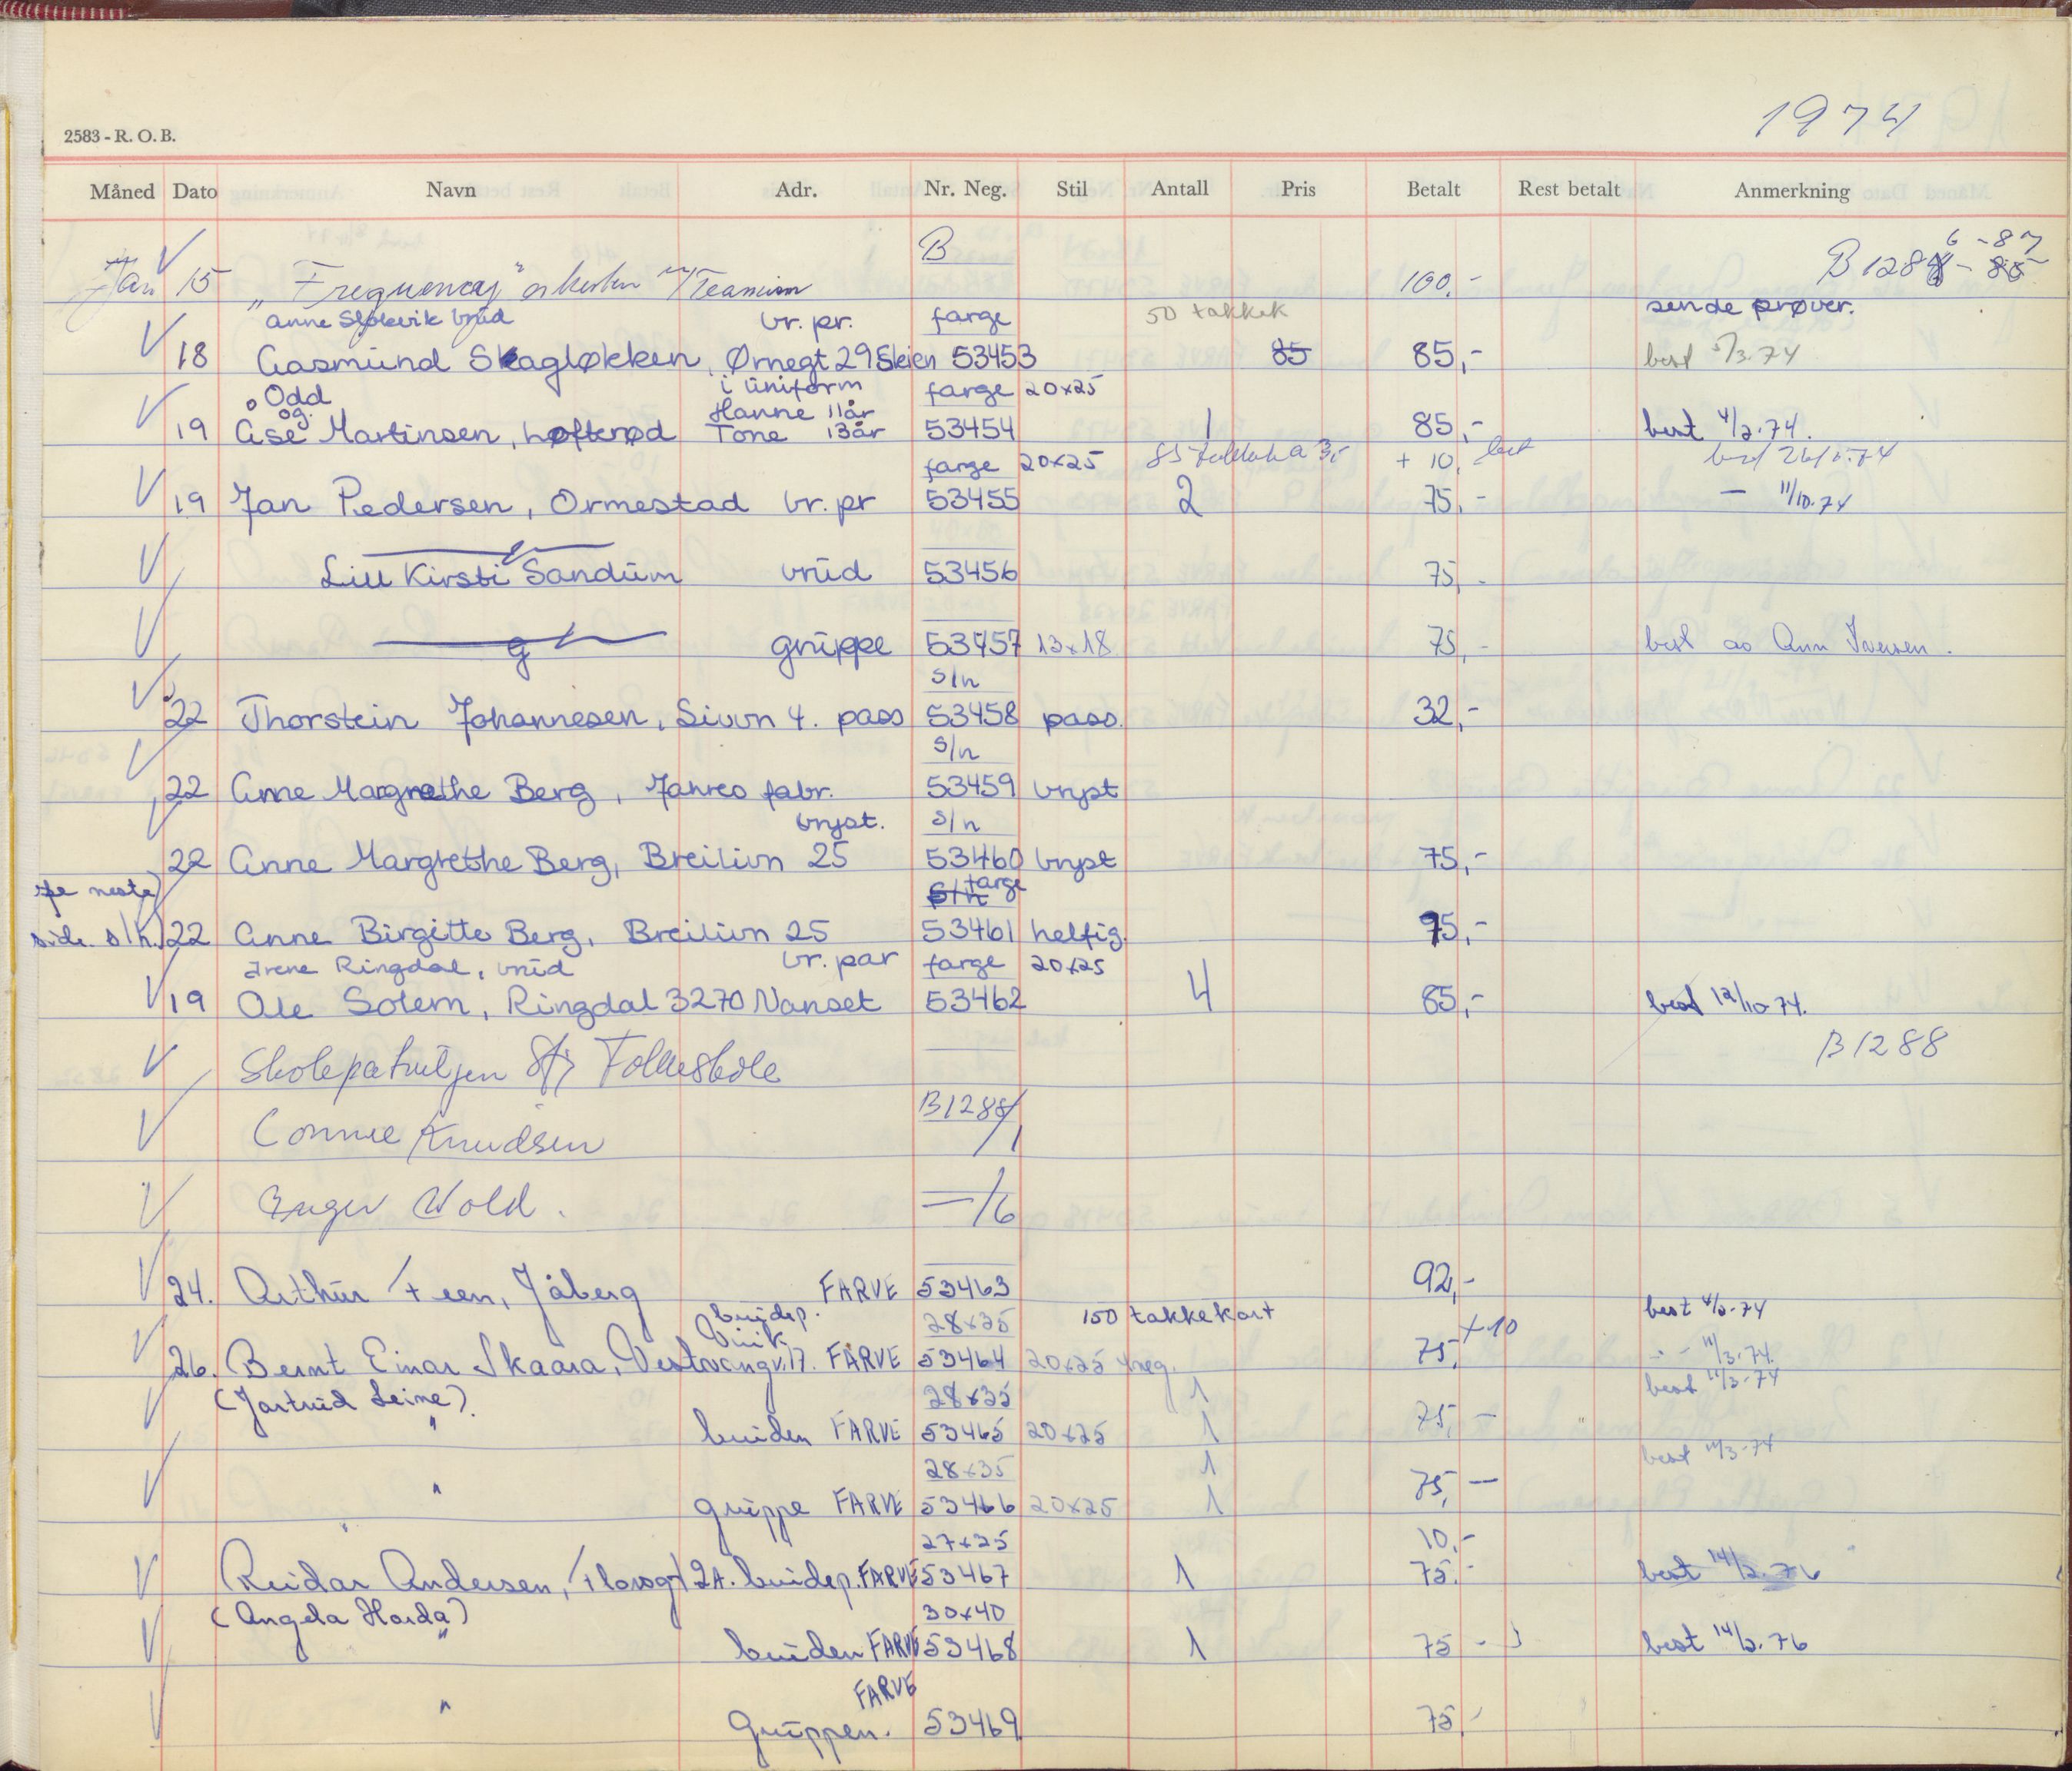 1974
2583 - R. O. B.
Måned Dato Navn Adr. Nr. Neg. Stil Antall Pris Betalt Rest betalt Anmerkning
B 6 - 87
Jan 15 "Frequency" 100,- B128
Anne brud br. pr. farge 50 takkek sende prøver.
18 Aasmund Skagløkken, Ørnegt 29 Skien 53453 85 85,- best 5/3.74
Odd i uniform farge 20x25
og. Hanne 11år
19 Åse Martinsen, høfterød Tone 13år 53454 1 85,- best 4/2.74.
farge 20x25 85 a 3,- + 10,
19 Jan Pedersen, Ormestad br. pr 53455 2 75,- — 11/10.74
Lill Kirsti Sandum brud 53456 75,-
gruppe 53457 13x18 75,- best Ann Iversen.
s/h
22 Thorstein Johannesen, Livvn 4. pass 53458 pass. 32,-
s/h
22 Anne Margrethe Berg, Jahres fabr. 53459 bryst
bryst. s/h
22 Anne Margrethe Berg, Breilivn 25 53460 bryst 75,-
neste s/h farge
side s/h. 22 Anne Birgitte Berg, Breilivn 25 53461 helfig. 95,-
Irene Ringdal, brud br. par farge 20x25
19 Ole Solem, Ringdal 3270 Nanset 53462 4 85,- best 12/10 74.
Skolepatruljen Folkeskole B1288
Connie Knudsen B1288/1
Inger Wold. —/6
24. Arthur Freen, Jåberg FARVE 53463 92,-
brudep. 28x35 150 takkekort best 4/2-74
26. Bernt Einar Skaara, Vestvangv. 17. FARVE 53464 20x25 4 neg. 75, +10 -"- 11/3.74.
(Jartrud Leine) 28x35 1 best 11/3-74
" bruden FARVE 53465 20x25 1 75,-
28x35 1 best 11/3-74
" gruppe FARVE 53466 20x25 1 75,—
27x35 10,-
Reidar Andersen, 2A. brudep. FARVE 53467 1 75,- best 14/2.76
(Angela Harda) 30x40
" bruden FARVE 53468 1 75 - best 14/2.76
FARVE
" Gruppen. 53469 75,-